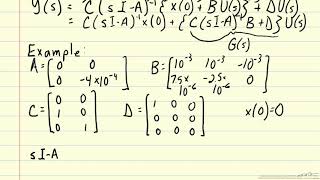 Y(s) = C(sI-A)⁻¹{x(0) + BU(s)} + DU(s)
= C(sI-A)⁻¹x(0) + {C(sI-A)⁻¹B + D}U(s)
G(s)
Example:
A = [0 0; 0 -4×10⁻⁴] B = [10⁻³ 10⁻³ -10⁻³; 7.5× 10⁻⁶ -2.5× 10⁻⁶ 0]
C = [0 0; 1 0; 0 1] D = [1 0 0; 0 0 0; 0 0 0] x(0)=0
sI-A